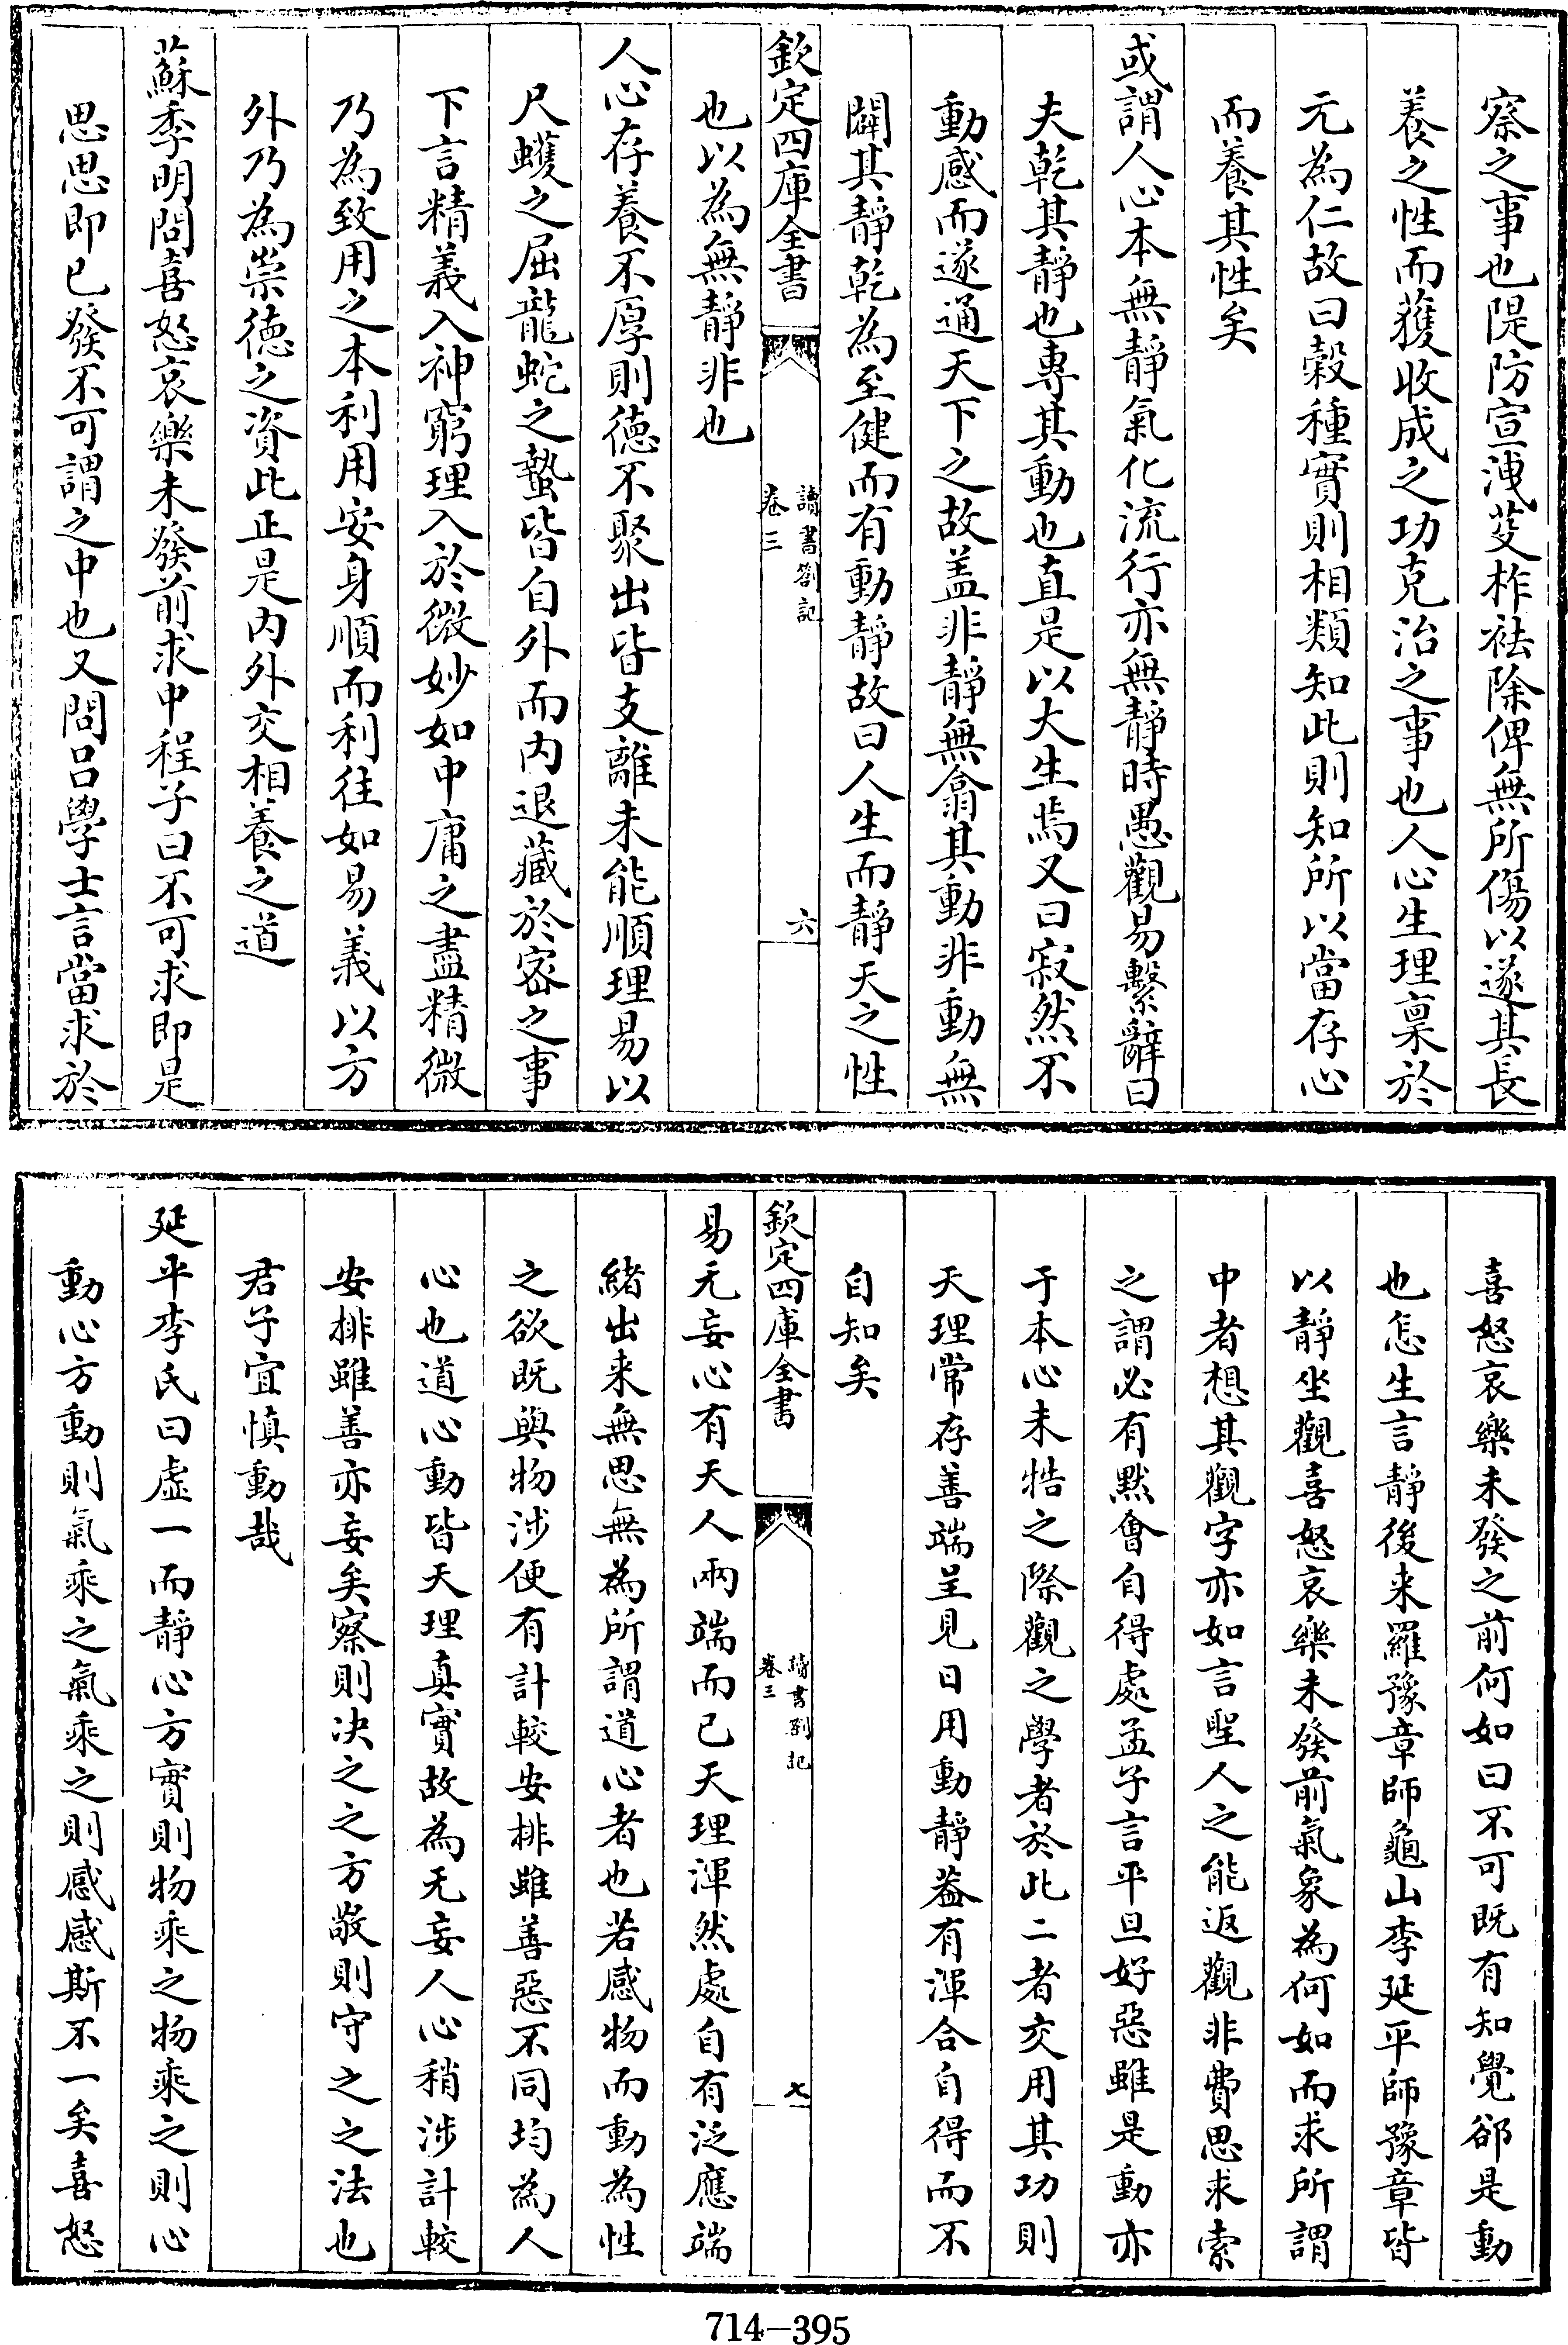 察之事也隄防宣洩芟柞袪除俾無所傷以遂其長
養之性而獲收成之功克治之事也人心生理禀於
元為仁故曰穀種實則相類知此則知所以當存心
而養其性矣
或謂人心本無靜氣化流行亦無靜時愚觀易繫辭曰
夫乾其靜也專其動也直是以大生焉又曰寂然不
動感而遂通天下之故盖非靜無翕其動非動無
闢其靜乾為至健而有動靜故曰人生而靜天之性
也以為無靜非也
欽定四庫全書
讀書劄記
卷三
六
人心存養不厚則徳不聚出皆支離未能順理易以
尺蠖之屈龍蛇之蟄皆自外而内退藏於宻之事
下言精義入神窮理入於微妙如中庸之盡精微
乃為致用之本利用安身順而利往如易義以方
外乃為崇徳之資此正是内外交相養之道
蘇季明問喜怒哀樂未發前求中程子曰不可求即是
思思即已發不可謂之中也又問吕學士言當求於
喜怒哀樂未發之前何如曰不可既有知覺郤是動
也怎生言靜後来羅豫章師龜山李延平師豫章皆
以靜坐觀喜怒哀樂未發前氣象為何如而求所謂
中者想其觀字亦如言聖人之能返觀非費思求索
之謂必有黙會自得處孟子言平旦好惡雖是動亦
于本心未牿之際觀之學者於此二者交用其功則
天理常存善端呈見日用動靜葢有渾合自得而不
自知矣
欽定四庫全書
讀書劄記
卷三
七
易无妄心有天人兩端而已天理渾然處自有泛應端
緒出来無思無為所謂道心者也若感物而動為性
之欲既與物涉便有計較安排雖善惡不同均為人
心也道心動皆天理真實故為无妄人心稍涉計較
安排雖善亦妄矣察則决之之方敬則守之之法也
君子宜慎動哉
延平李氏曰虚一而靜心方實則物乘之物乘之則心
動心方動則氣乘之氣乘之則感感斯不一矣喜怒
714-395